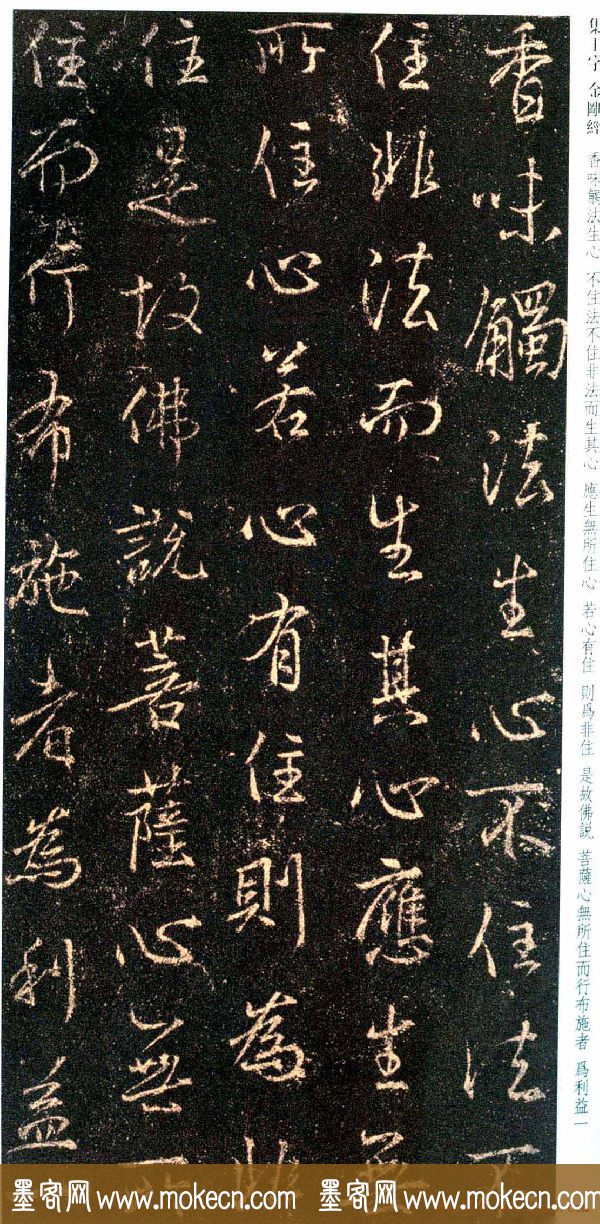 集王字 金剛經 香味觸法生心 不住法不住非法而生其心 應生無所住心 若心有住 則爲非住 是故佛説 菩薩心無所住而行布施者 爲利益一
香味觸法生心不住法不
住非法而生其心應生無
所住心若心有住則為非
住是故佛說菩薩心無所
住而行布施者為利益
墨客网 www.mokecn.com 墨客网 www.mokecn.com